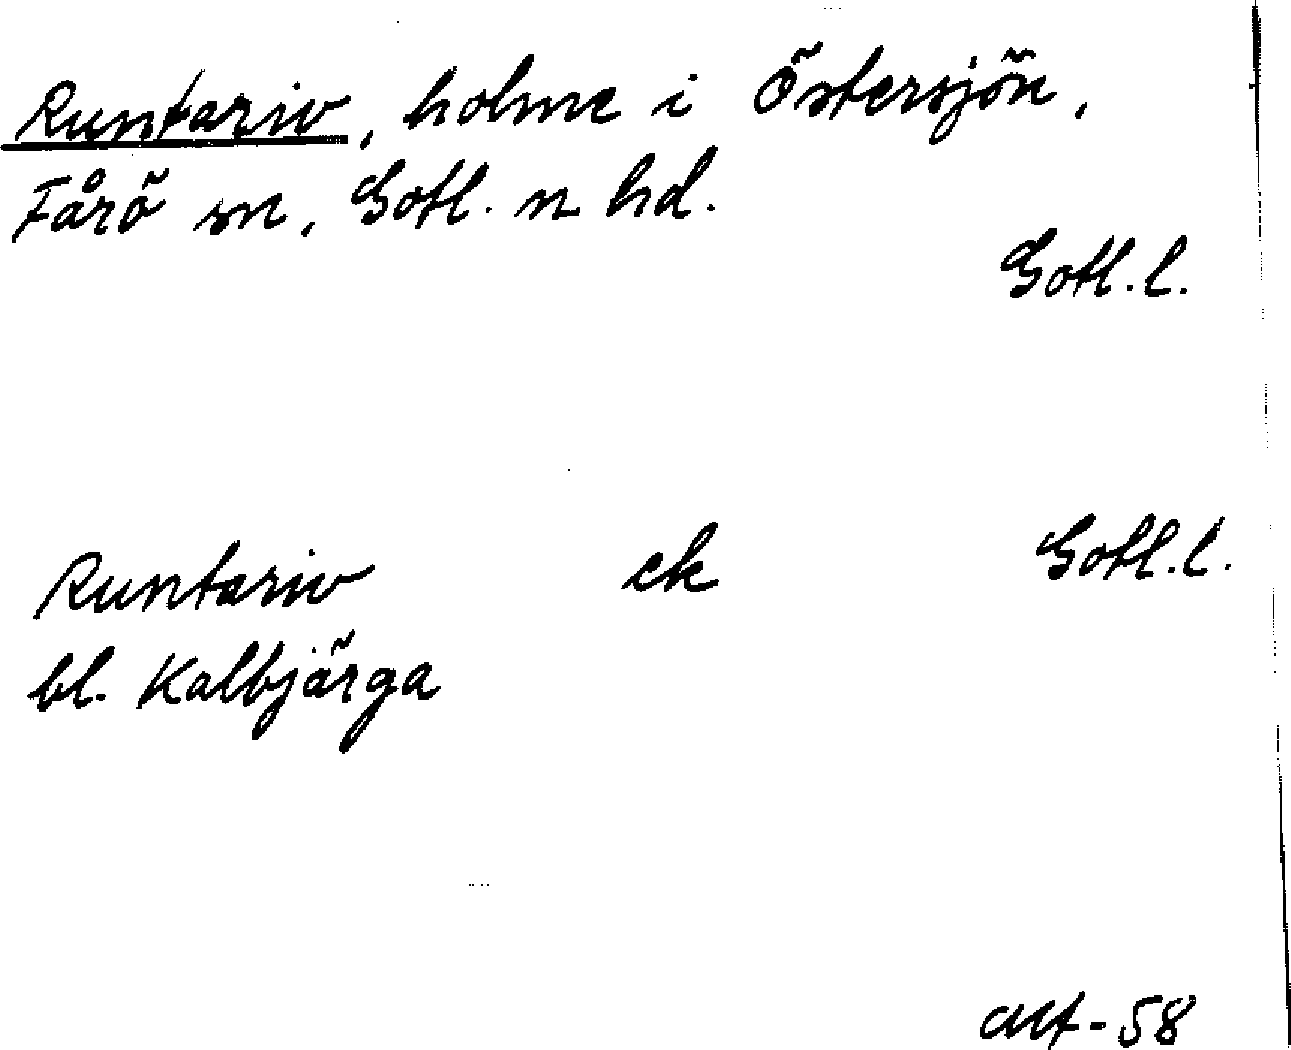 Runtariv, holme i Östersjön,
Fårö sn, Gotl. n hd.
Gotl. l.
Runtariv ek Gotl. l.
bl. Kalbjärga
-58